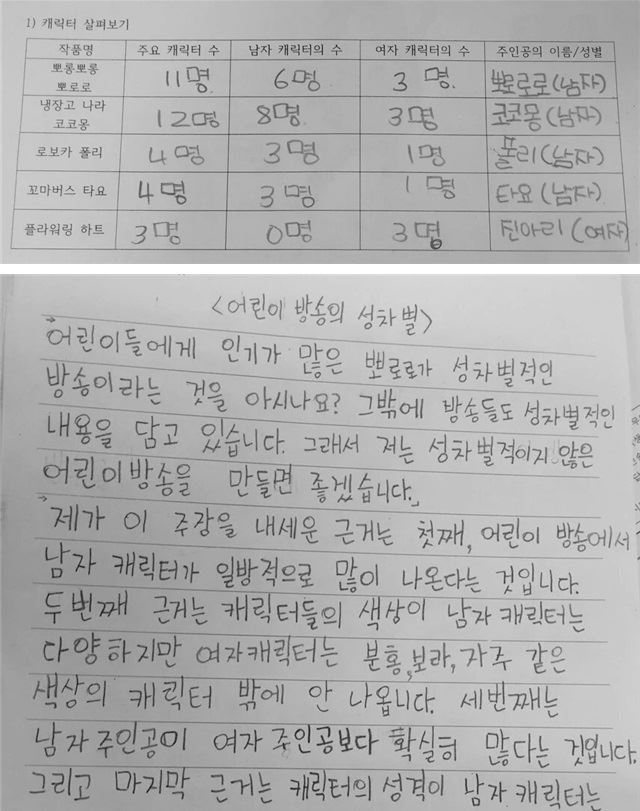 1) 캐릭터 살펴보기
작품명 주요 캐릭터 수 남자 캐릭터의 수 여자 캐릭터의 수 주인공의 이름/성별
뽀롱뽀롱 뽀로로 11명 6명 3명 뽀로로(남자)
냉장고 나라 코코몽 12명 8명 3명 코코몽(남자)
로보카 폴리 4명 3명 1명 폴리(남자)
꼬마버스 타요 4명 3명 1명 타요(남자)
플라워링 하트 3명 0명 3명 진아리(여자)
<어린이 방송의 성차별>
어린이들에게 인기가 많은 뽀로로가 성차별적인
방송이라는 것을 아시나요? 그밖에 방송들도 성차별적인
내용을 담고 있습니다. 그래서 저는 성차별적이지 않은
어린이방송을 만들면 좋겠습니다.
제가 이 주장을 내세운 근거는 첫째, 어린이 방송에서
남자 캐릭터가 일방적으로 많이 나온다는 것입니다.
두번째 근거는 캐릭터들의 색상이 남자캐릭터는
다양하지만 여자캐릭터는 분홍,보라,자주 같은
색상의 캐릭터 밖에 안 나옵니다. 세번째는
남자주인공이 여자 주인공보다 확실히 많다는 것입니다.
그리고 마지막 근거는 캐릭터의 성격이 남자 캐릭터는